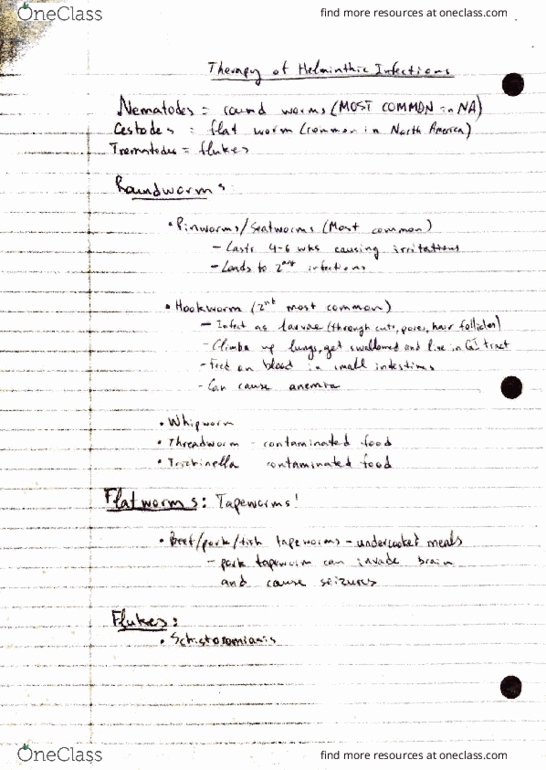 OneClass
find more resources at oneclass.com
Therapy of Helminthic Infections
Nematodes = round worms (MOST COMMON in NA)
Cestodes = flat worm (common in North America)
Trematodes = flukes
Roundworms:
• Pinworms/Seatworms (Most common)
- Lasts 4-6 wks causing irritations
- Leads to 2ary infections
• Hookworm (2nd most common)
- Infect as larvae (through cuts, pores, hair follicles)
- Climbs up lungs, get swallowed and live in GI tract
- Feed on blood in small intestines
- Can cause anemia
• Whipworm
• Threadworm - contaminated food
• Trichinella contaminated food
Flatworms: Tapeworms!
• Beef/pork/fish tapeworms - undercooked meats
- pork tapeworm can invade brain
and cause seizures
Flukes:
• Schistosomiasis
OneClass
find more resources at oneclass.com